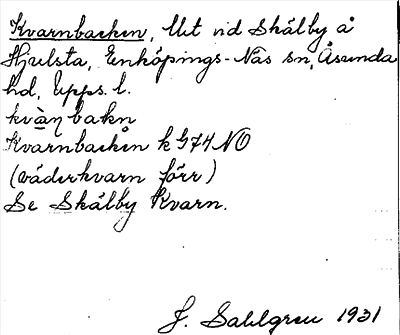 Kvarnbacken, Ut vid Skälby å
Hjulsta, Enköpings-Näs sn, Åsunda
hd, Upps. l.
kvàṇbakn
Kvarnbacken k 974 NO
(väderkvarn förr)
Se Skälby Kvarn.
J. Sahlgren 1931